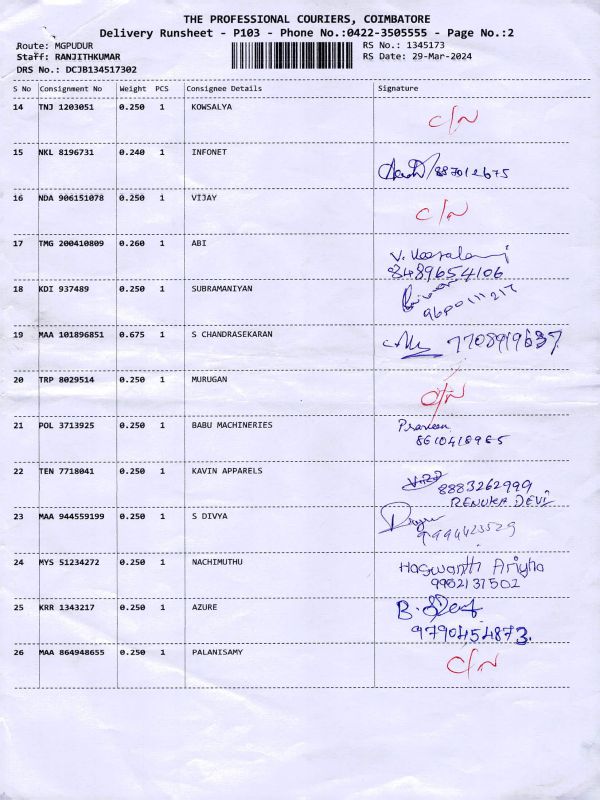 THE PROFESSIONAL COURIERS, COIMBATORE
Delivery Runsheet - P103 - Phone No.:0422-3505555 - Page No.:2
Route: MGPUDUR RS No.: 1345173
Staff: RANJITHKUMAR RS Date: 29-Mar-2024
DRS No.: DCJB134517302
S No Consignment No Weight PCS Consignee Details Signature
14 TNJ 1203051 0.250 1 KOWSALYA C/N
15 NKL 8196731 0.240 1 INFONET
16 NDA 906151078 0.250 1 VIJAY C/N
17 TMG 200410809 0.260 1 ABI V.
8489654106
18 KDI 937489 0.250 1 SUBRAMANIYAN
9600111217
19 MAA 101896851 0.675 1 S CHANDRASEKARAN 7708919637
20 TRP 8029514 0.250 1 MURUGAN C/N
21 POL 3713925 0.250 1 BABU MACHINERIES Praveen
8610418985
22 TEN 7718041 0.250 1 KAVIN APPARELS
8883262999
RENUKA DEVI
23 MAA 944559199 0.250 1 S DIVYA
9994423529
24 MYS 51234272 0.250 1 NACHIMUTHU Haswanth
9902137502
25 KRR 1343217 0.250 1 AZURE B.
9790454873.
26 MAA 864948655 0.250 1 PALANISAMY C/N